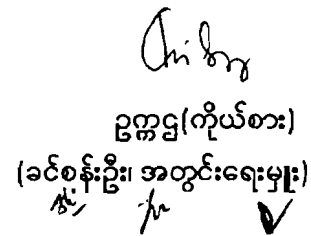 ဥက္ကဋ္ဌ(ကိုယ်စား)
(ခင်စန်းဦး၊ အတွင်းရေးမှူး)